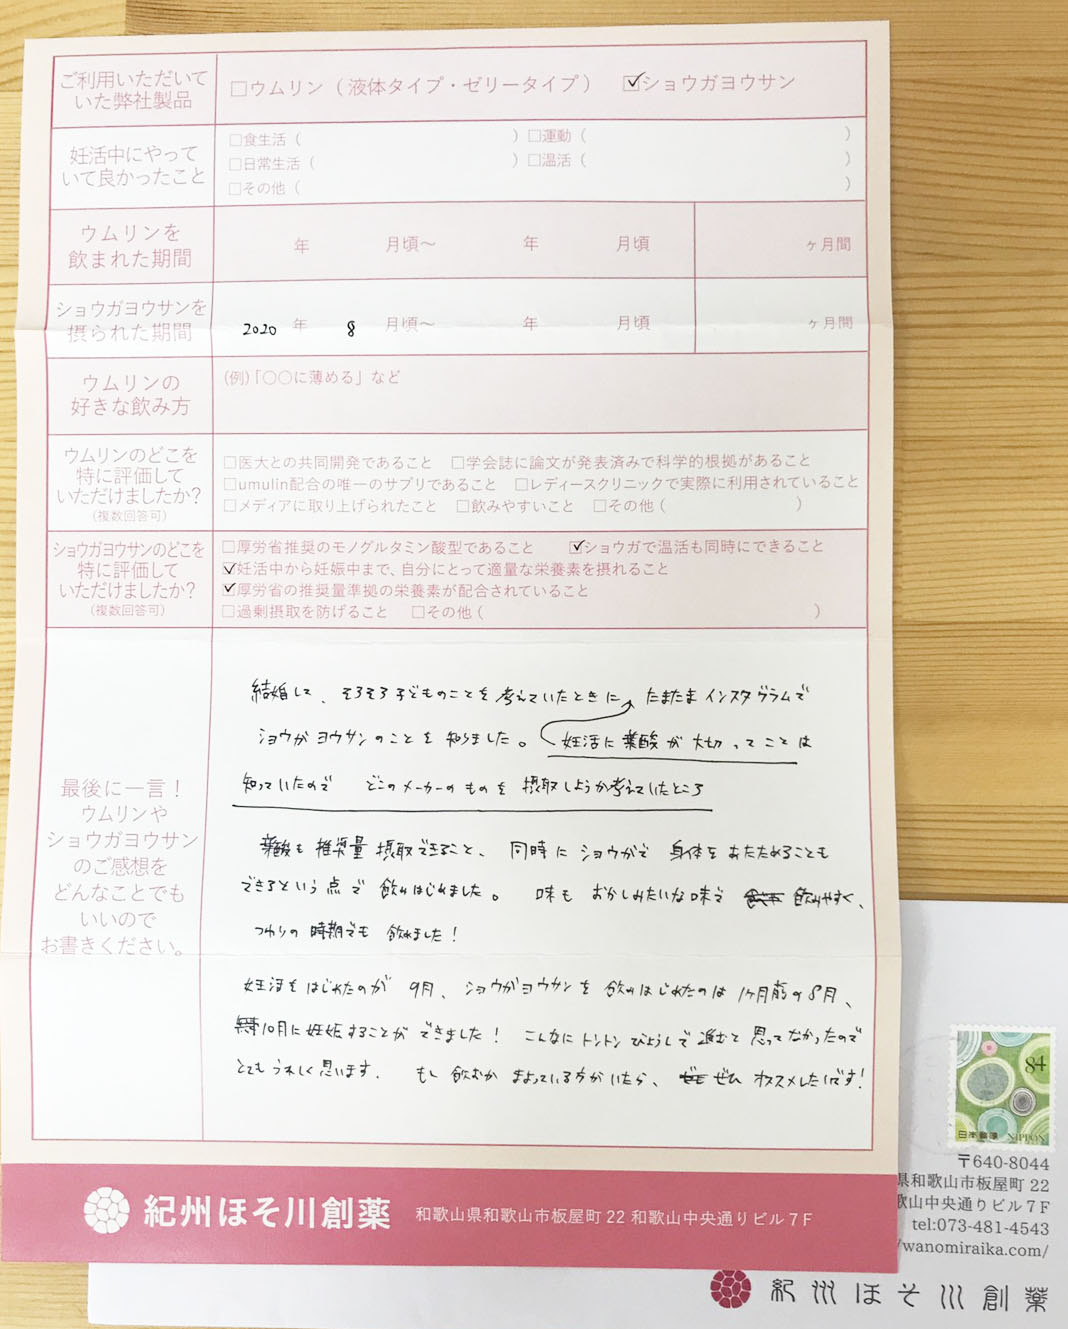 ご利用いただいて
いた弊社製品
□ウムリン（液体タイプ・ゼリータイプ） ☑ショウガヨウサン
妊活中にやって
いて良かったこと
□食生活（ ）□運動（ ）
□日常生活（ ）□温活（ ）
□その他（ ）
ウムリンを
飲まれた期間
年 月頃〜 年 月頃 ヶ月間
ショウガヨウサンを
摂られた期間
2020 年 8 月頃〜 年 月頃 ヶ月間
ウムリンの
好きな飲み方
(例)「○○に薄める」など
ウムリンのどこを
特に評価して
いただけましたか?
(複数回答可)
□医大との共同開発であること □学会誌に論文が発表済みで科学的根拠があること
□umulin配合の唯一のサプリであること □レディースクリニックで実際に利用されていること
□メディアに取り上げられたこと □飲みやすいこと □その他（ ）
ショウガヨウサンのどこを
特に評価して
いただけましたか?
(複数回答可)
□厚労省推奨のモノグルタミン酸型であること ☑ショウガで温活も同時にできること
☑妊活中から妊娠中まで、自分にとって適量な栄養素を摂れること
☑厚労省の推奨量準拠の栄養素が配合されていること
□過剰摂取を防げること □その他（ ）
最後に一言！
ウムリンや
ショウガヨウサン
のご感想を
どんなことでも
いいので
お書きください。
結婚して、そろそろ子どものことを考えていたときに たまたまインスタグラムで
ショウガヨウサンのことを知りました。 妊活に葉酸が大切ってことは
知っていたので どこのメーカーのものを摂取しようか考えていたところ
葉酸も推奨量摂取できること、同時にショウガで身体をあたためることも
できるという点で飲みはじめました。 味もおかしみたいな味で 飲みやすく、
つわりの時期でも飲れました！
妊活をはじめたのが9月、ショウガヨウサンを飲みはじめたのは1ヶ月前の8月、
10月に妊娠することができました！こんなにトントンびょうしで進むと思ってなかったので
とてもうれしく思います. もし飲むかまよっている方がいたら、ぜひオススメしたいです！
紀州ほそ川創薬 和歌山県和歌山市板屋町22 和歌山中央通りビル7F
84
日本郵便 NIPPON
〒640-8044
県和歌山市板屋町 22
歌山中央通りビル7F
tel:073-481-4543
/wanomiraika.com/
紀州ほそ川創薬